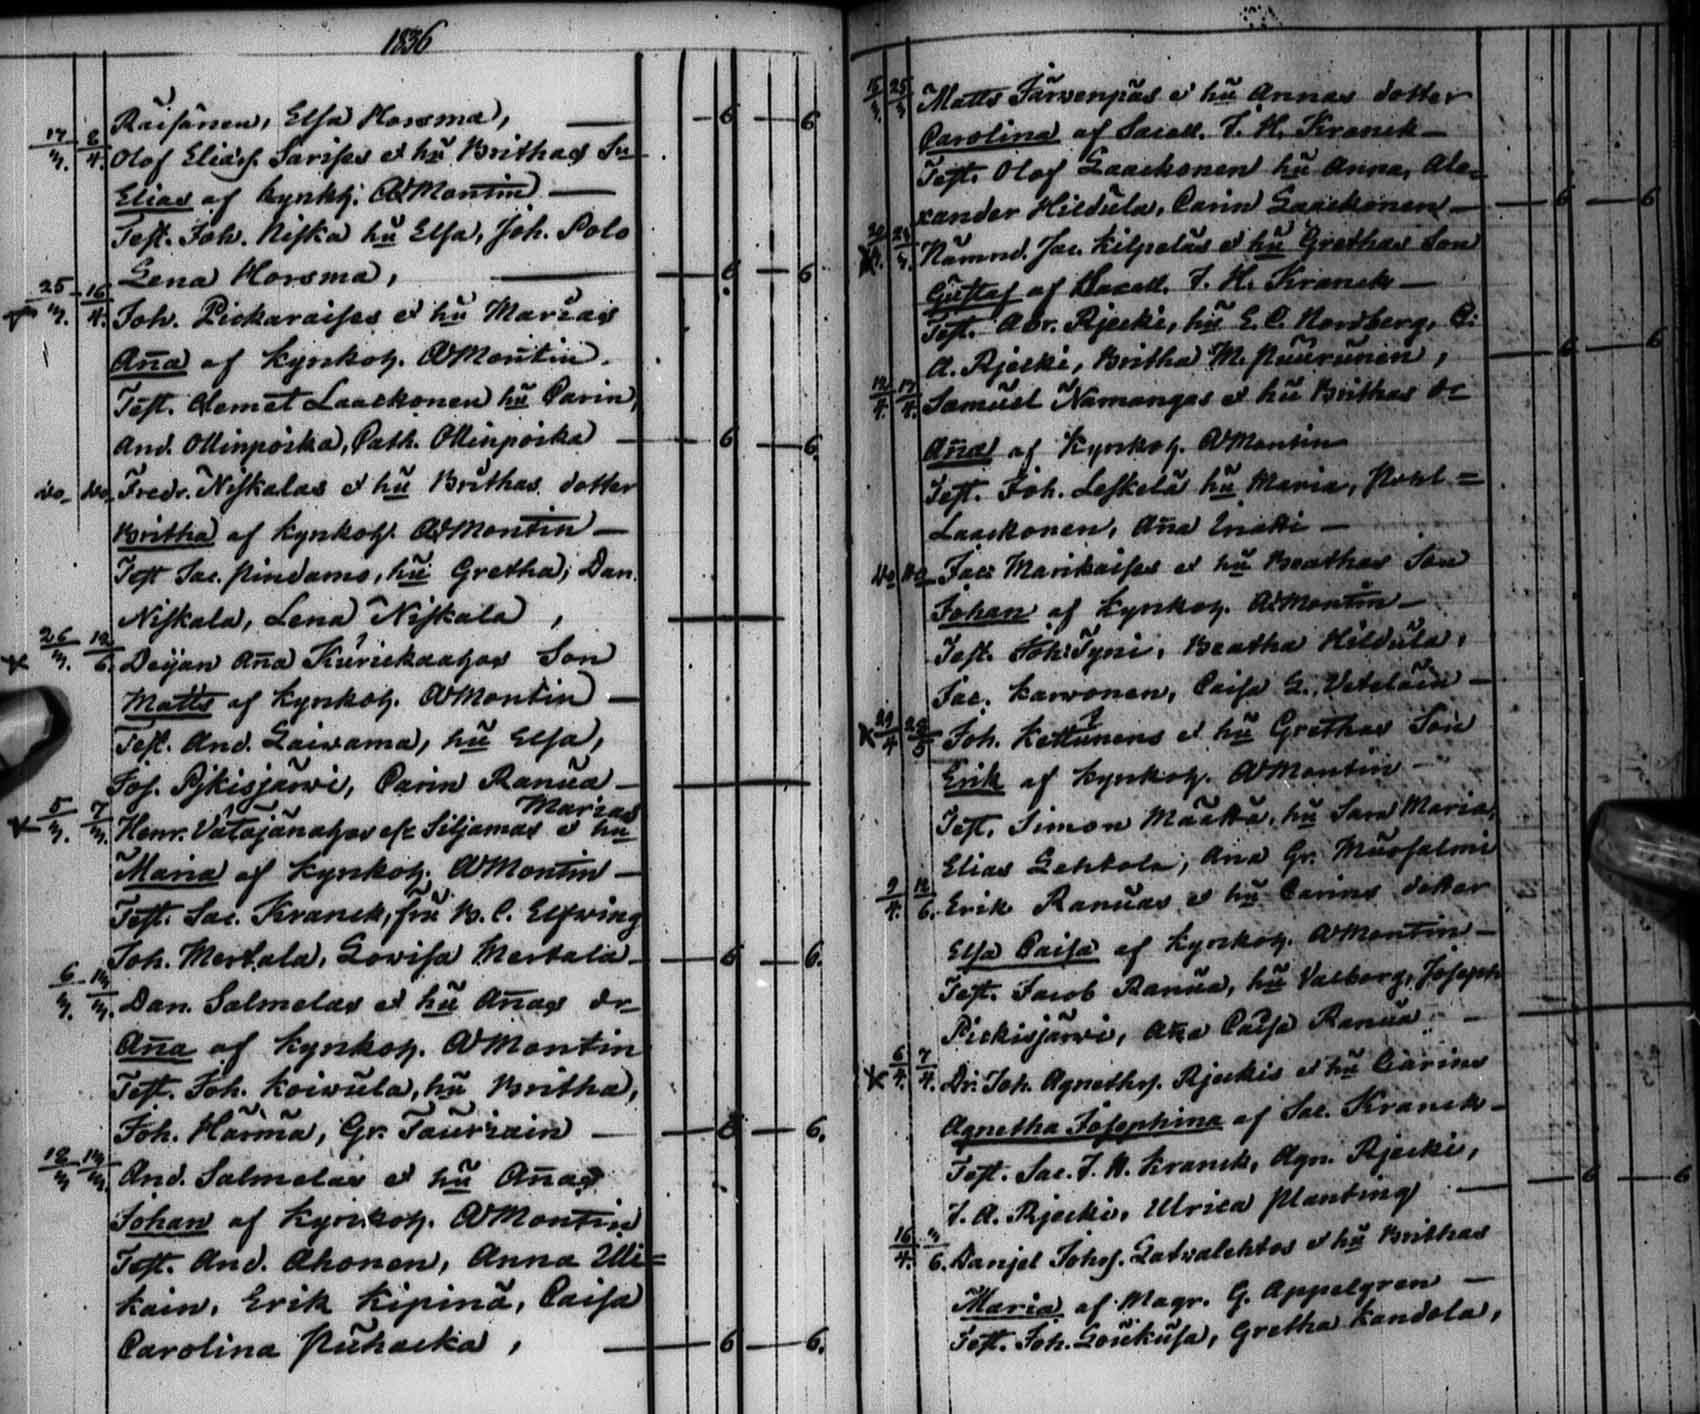 1836
Räisänen, Elsa Horsma, — 6 — 6
17/3. 2/4. Olof Eliæs. Sarises et hu Brithas Sn
Elias af Kynkhz. AMontin —
Test. Joh. Niska hu Elsa, Joh. Polo
Lena Horsma, — 6 — 6
25/3. 16/4. Joh. Pickaraises et hu Marias
Aña af Kynkoz. AMontin.
Test. Clemet Laackonen hu Carin,
And. Ollinpoika, Cath. Ollinpoika — 6 — 6.
do do Fredr. Niskalas et hu Brithas dotter
Britha af Kynkoz. AMontin —
Test Jac. Pindams, hu Gretha, Dan.
Niskala, Lena Niskala, —
26/3. 12/6. Deijan Aña Kurickaahos Son
Matts af Kynkoz. AMontin —
Test. And. Laiwama, hu Elsa,
Jos. Pjkisjärwi, Carin Ranua —
5/3. 7/3. Henr. Wätäjänahos et hu
Marias
Maria af Kynkoz. AMontin —
Test. Jac. Kranck, fru B. C. Elfwing
Joh. Mertala, Lowisa Mertala — 6 — 6.
6/3. 13/3. Dan. Salmelas et hu Añas dr
Aña af Kynkoz. AMontin
Test. Joh. Koiwula, hu Britha,
Joh. Härmä, Gr. Tauriain — 6 — 6.
12/3 13/3. And. Salmelas et hu Añas
Johan af Kynkoz. AMontin
Test. And. Ahonen, Anna Ulli=
kain, Erik Kipinä, Caisa
Carolina Puhacka, — 6 — 6.
15/3. 25/3 Matts Järvenpäs et hu Annas dotter
Carolina af Sacell. J. H. Kranck —
Test. Olof Laackonen hu Anna, Ale=
xander Hildula, Carin Laackonen — 6 — 6
Nämnd. Jac. Kilpeläs et hu Grethas Son
Gustaf af Sacell. J. H. Kranck —
Test. Abr. Rjecki, hu E. C. Nordberg, C.
A. Rjecki, Britha M. Puurunen, — 6 — 6
12/4. 17/4. Samuel Nämängas et hu Brithas dr
Aña af Kynkoz. AMontin
Test. Joh. Leskelä hu Maria, Pohl=
Laackonen, Aña Inatti —
do do Jac Marikaises et hu Beathas Son
Johan af Kynkoz. AMontin —
Test. Joh. Tyni, Beatha Hildula,
Jac. Karvonen, Caisa G. Vetelain —
Joh. Kettunens et hu Grethas Son
Erik af Kynkoz. AMontin —
Test. Simon Määttä, hu Sara Maria,
Elias Lehtola, Ana Gr. Muosalmi
9/4. 12/6. Erik Ranuas et hu Carins dotter
Elsa Caisa af Kynkoz. AMontin —
Test. Jacob Ranua, hu Valborg, Joseph
Pickisjärvi, Aña Caisa Ranua. —
6/4. 7/4. Dr. Joh. Agnethes. Rjeckis et hu Carins
Agnetha Josephina af Sac. Kranck —
Test. Sac. J. H. Kranck, Agn. Rjecki,
J. A. Rjecki, Ulrica Planting — 6 — 6
16/4. 3/6. Danjel Johs. Latvalehtos et hu Brithas
Maria af Magr. G. Appelgren —
Test. Joh. Loukusa, Gretha Kandola,